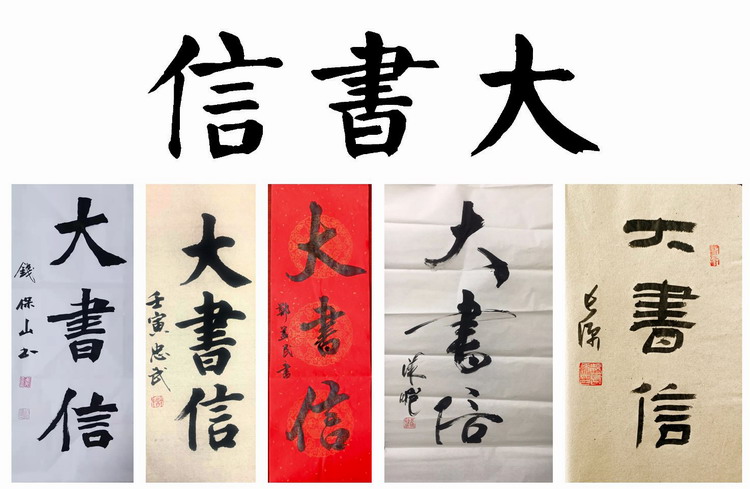 大書信
大書信
錢保山书
大書信
壬寅忠武
大書信
大書信
大書信